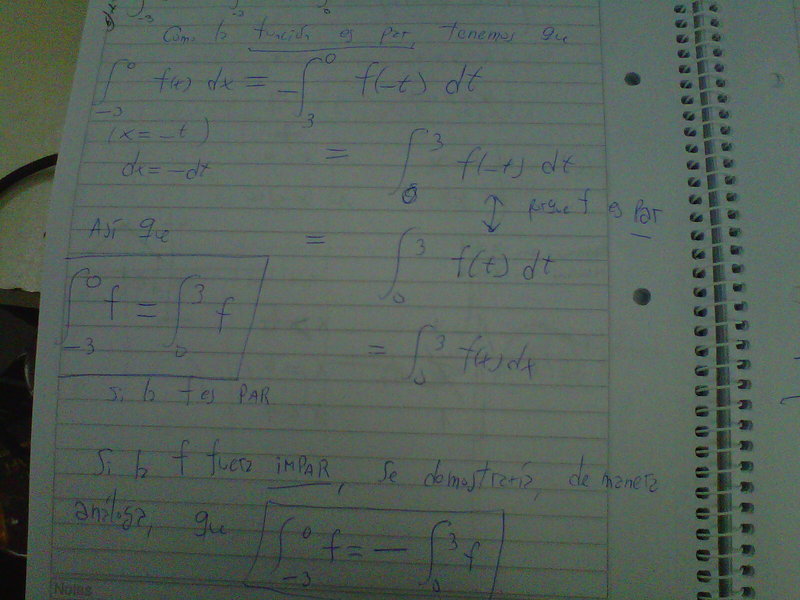 Como la función es par, tenemos que
∫_{-3}^{0} f(x) dx = -∫_{3}^{0} f(-t) dt
(x = -t)
dx = -dt
= ∫_{0}^{3} f(-t) dt
↕ porque f es par
Así que
= ∫_{0}^{3} f(t) dt
∫_{-3}^{0} f = ∫_{0}^{3} f
= ∫_{0}^{3} f(x) dx
si la f es PAR
Si la f fuera IMPAR, se demostraría, de manera
análoga, que ∫_{-3}^{0} f = - ∫_{0}^{3} f
Notas